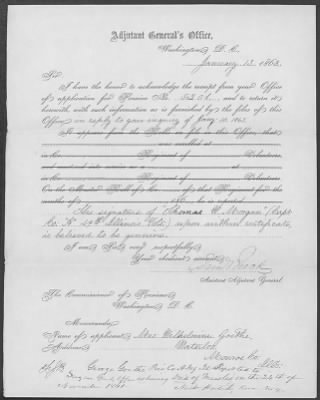 Adjutant General's Office,
Washington, D. C.
January 13, 1863.
Sir:
I have the honor to acknowledge the receipt from your Office
of application for Pension No. and to return it
herewith, with such information as is furnished by the files of this
Office, in reply to your inquiry of Jany 10, 1863.
It appears from the Rolls on file in this Office, that
was enrolled at
in Co. Regiment of Volunteers,
and mustered into service
in Co. Regiment of Volunteers.
On the Muster Roll of Co. of that Regiment for the
months of 186 , he is reported
The signature of "Thomas W. Morgan" Capt
Co. "K" 49th Illinois Vols, upon within certificate,
is believed to be genuine.
I am Sir, very respectfully,
Your obedient servant,
Assistant Adjutant General.
The Commissioner of Pensions,
Washington, D. C.
Memoranda:
Name of applicant, Mrs. Wilhelmine Goethe
Address, Waterloo,
Monroe Co.
Ills.
George Goethe
on the 24th of
November 1861